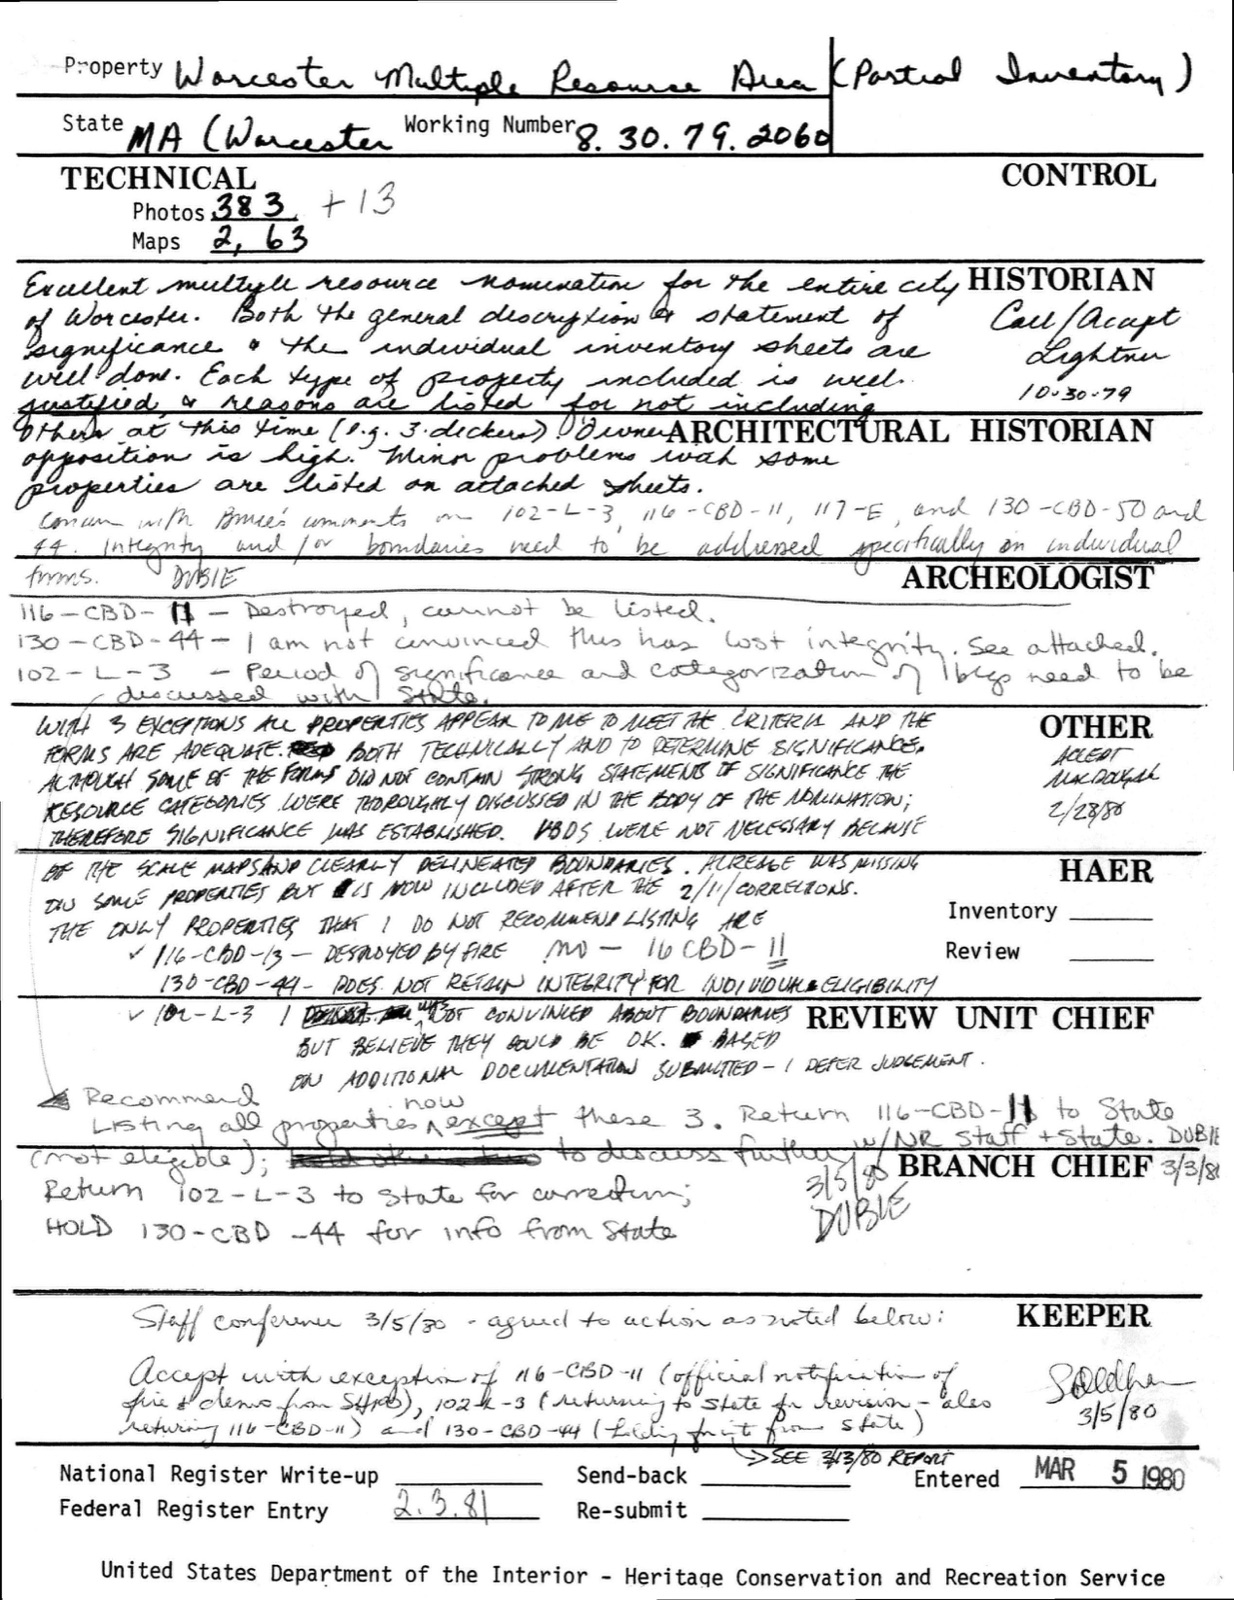 Property Worcester Multiple Resource Area (Partial Inventory)
State MA (Worcester Working Number 8.30.79.2060
TECHNICAL
CONTROL
Photos 383 + 13
Maps 2, 63
Excellent multiple resource nomination for the entire city HISTORIAN
of Worcester. Both the general description & statement of Call/Accept
significance & the individual inventory sheets are Lightner
well done. Each type of property included is well 10-30-79
justified, & reasons are listed for not including
others at this time (e.g. 3-deckers). Owner ARCHITECTURAL HISTORIAN
opposition is high. Minor problems with some
properties are listed on attached sheets.
Concur with Bruce's comments on 102-L-3, 116-CBD-11, 117-E, and 130-CBD-50 and
44. Integrity and/or boundaries need to be addressed specifically on individual
forms. DUBIE
ARCHEOLOGIST
116-CBD-11 - Destroyed, cannot be listed.
130-CBD-44 - I am not convinced this has lost integrity. See attached.
102-L-3 - Period of significance and categorization of 1 bldgs need to be
discussed with State.
WITH 3 EXCEPTIONS ALL PROPERTIES APPEAR TO ME TO MEET THE CRITERIA AND THE OTHER
FORMS ARE ADEQUATE BOTH TECHNICALLY AND TO DETERMINE SIGNIFICANCE. ACCEPT
ALTHOUGH SOME OF THE FORMS DID NOT CONTAIN STRONG STATEMENTS OF SIGNIFICANCE THE MACDOUGAL
RESOURCE CATEGORIES WERE THOROUGHLY DISCUSSED IN THE BODY OF THE NOMINATION; 2/28/80
THEREFORE SIGNIFICANCE WAS ESTABLISHED. VBDS WERE NOT NECESSARY BECAUSE
OF THE SCALE MAPS AND CLEARLY DELINEATED BOUNDARIES. ACREAGE WAS MISSING HAER
ON SOME PROPERTIES BUT IS NOW INCLUDED AFTER THE 2/11/CORRECTIONS.
THE ONLY PROPERTIES THAT I DO NOT RECOMMEND LISTING ARE Inventory
✓ 116-CBD-13 - DESTROYED BY FIRE NO - 116 CBD-11 Review
130-CBD-44 - DOES NOT RETAIN INTEGRITY FOR INDIVIDUAL ELIGIBILITY
✓ 102-L-3 I WAS NOT CONVINCED ABOUT BOUNDARIES REVIEW UNIT CHIEF
BUT BELIEVE THEY COULD BE OK. BASED
ON ADDITIONAL DOCUMENTATION SUBMITTED - I DEFER JUDGEMENT.
Recommend
Listing all properties now except these 3. Return 116-CBD-11 to State
(not eligible); to discuss further w/NR Staff + State. DUBIE
BRANCH CHIEF 3/3/80
Return 102-L-3 to State for correction; 3/5/80
HOLD 130-CBD-44 for info from State DUBIE
Staff conference 3/5/80 - agreed to action as noted below: KEEPER
Accept with exception of 116-CBD-11 (official notification of
fire & demo from SHPO), 102-L-3 (returning to State for revision - also
returning 116-CBD-11) and 130-CBD-44 (holding for info from State) 3/5/80
→ SEE 3/13/80 REPORT
National Register Write-up Send-back Entered MAR 5 1980
Federal Register Entry 2.3.81 Re-submit
United States Department of the Interior - Heritage Conservation and Recreation Service